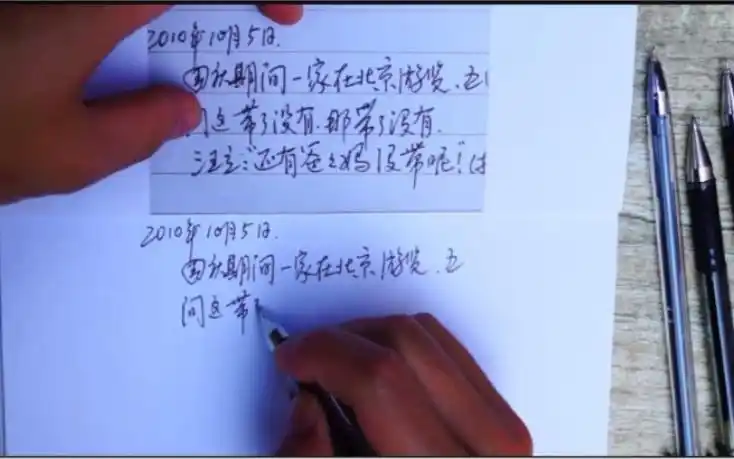 2010年10月5日.
国庆期间一家在北京游览.五
问这带了没有.那带了没有.
汪立:"还有爸爸妈妈没带呢!"
2010年10月5日.
国庆期间一家在北京游览.五
问这带